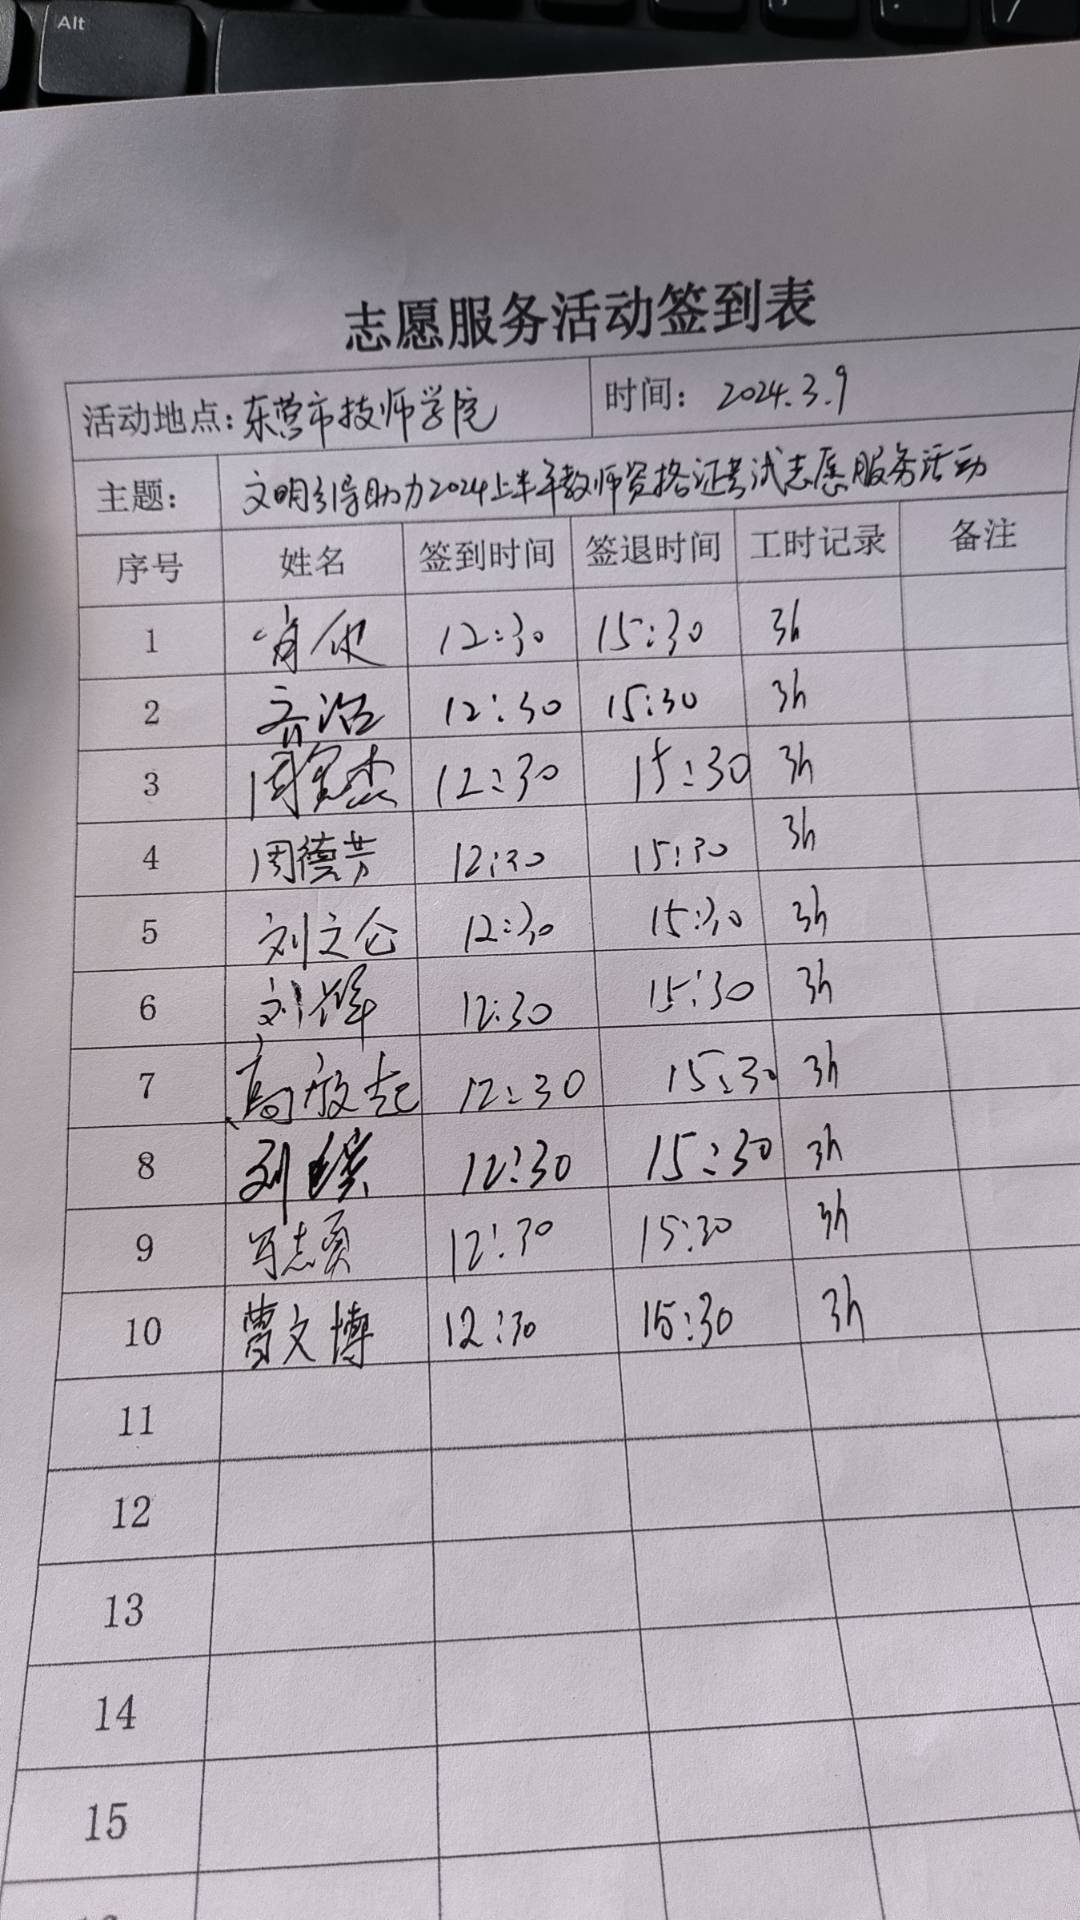 Alt
志愿服务活动签到表
活动地点: 东营市技师学院 时间: 2024.3.9
主题: 文明引导助力2024上半年教师资格证考试志愿服务活动
序号 姓名 签到时间 签退时间 工时记录 备注
1 12:30 15:30 3h
2 齐滔 12:30 15:30 3h
3 12:30 15:30 3h
4 周德芳 12:30 15:30 3h
5 刘文仑 12:30 15:30 3h
6 12:30 15:30 3h
7 12:30 15:30 3h
8 12:30 15:30 3h
9 12:30 15:30 3h
10 曹文博 12:30 15:30 3h
11
12
13
14
15